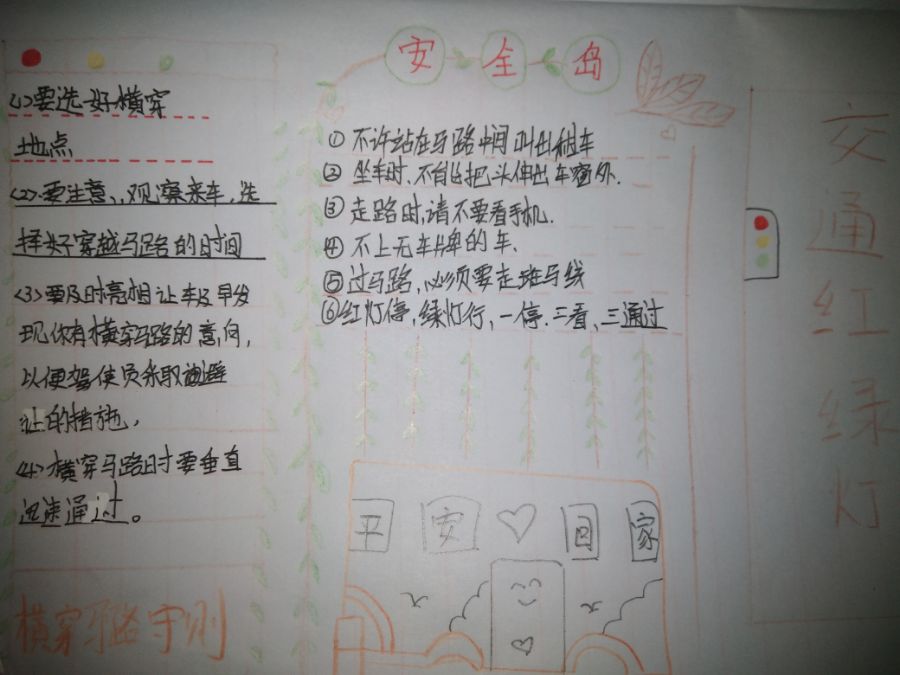 安全岛
<1>要选好横穿
地点
<2>要注意,观察来车,选
择好穿越马路的时间
<3>要及时亮相让车及早发
现你有横穿马路的意向,
以便驾使员采取避
让的措施,
<4>横穿马路时要垂直
迅速通过。
横穿马路守则
①不许站在马路中间叫出租车
②坐车时,不能把头伸出车窗外.
③走路时,请不要看手机.
④不上无车牌的车.
⑤过马路,必须要走斑马线
⑥红灯停,绿灯行,一停.二看、三通过
平安回家
交通红绿灯